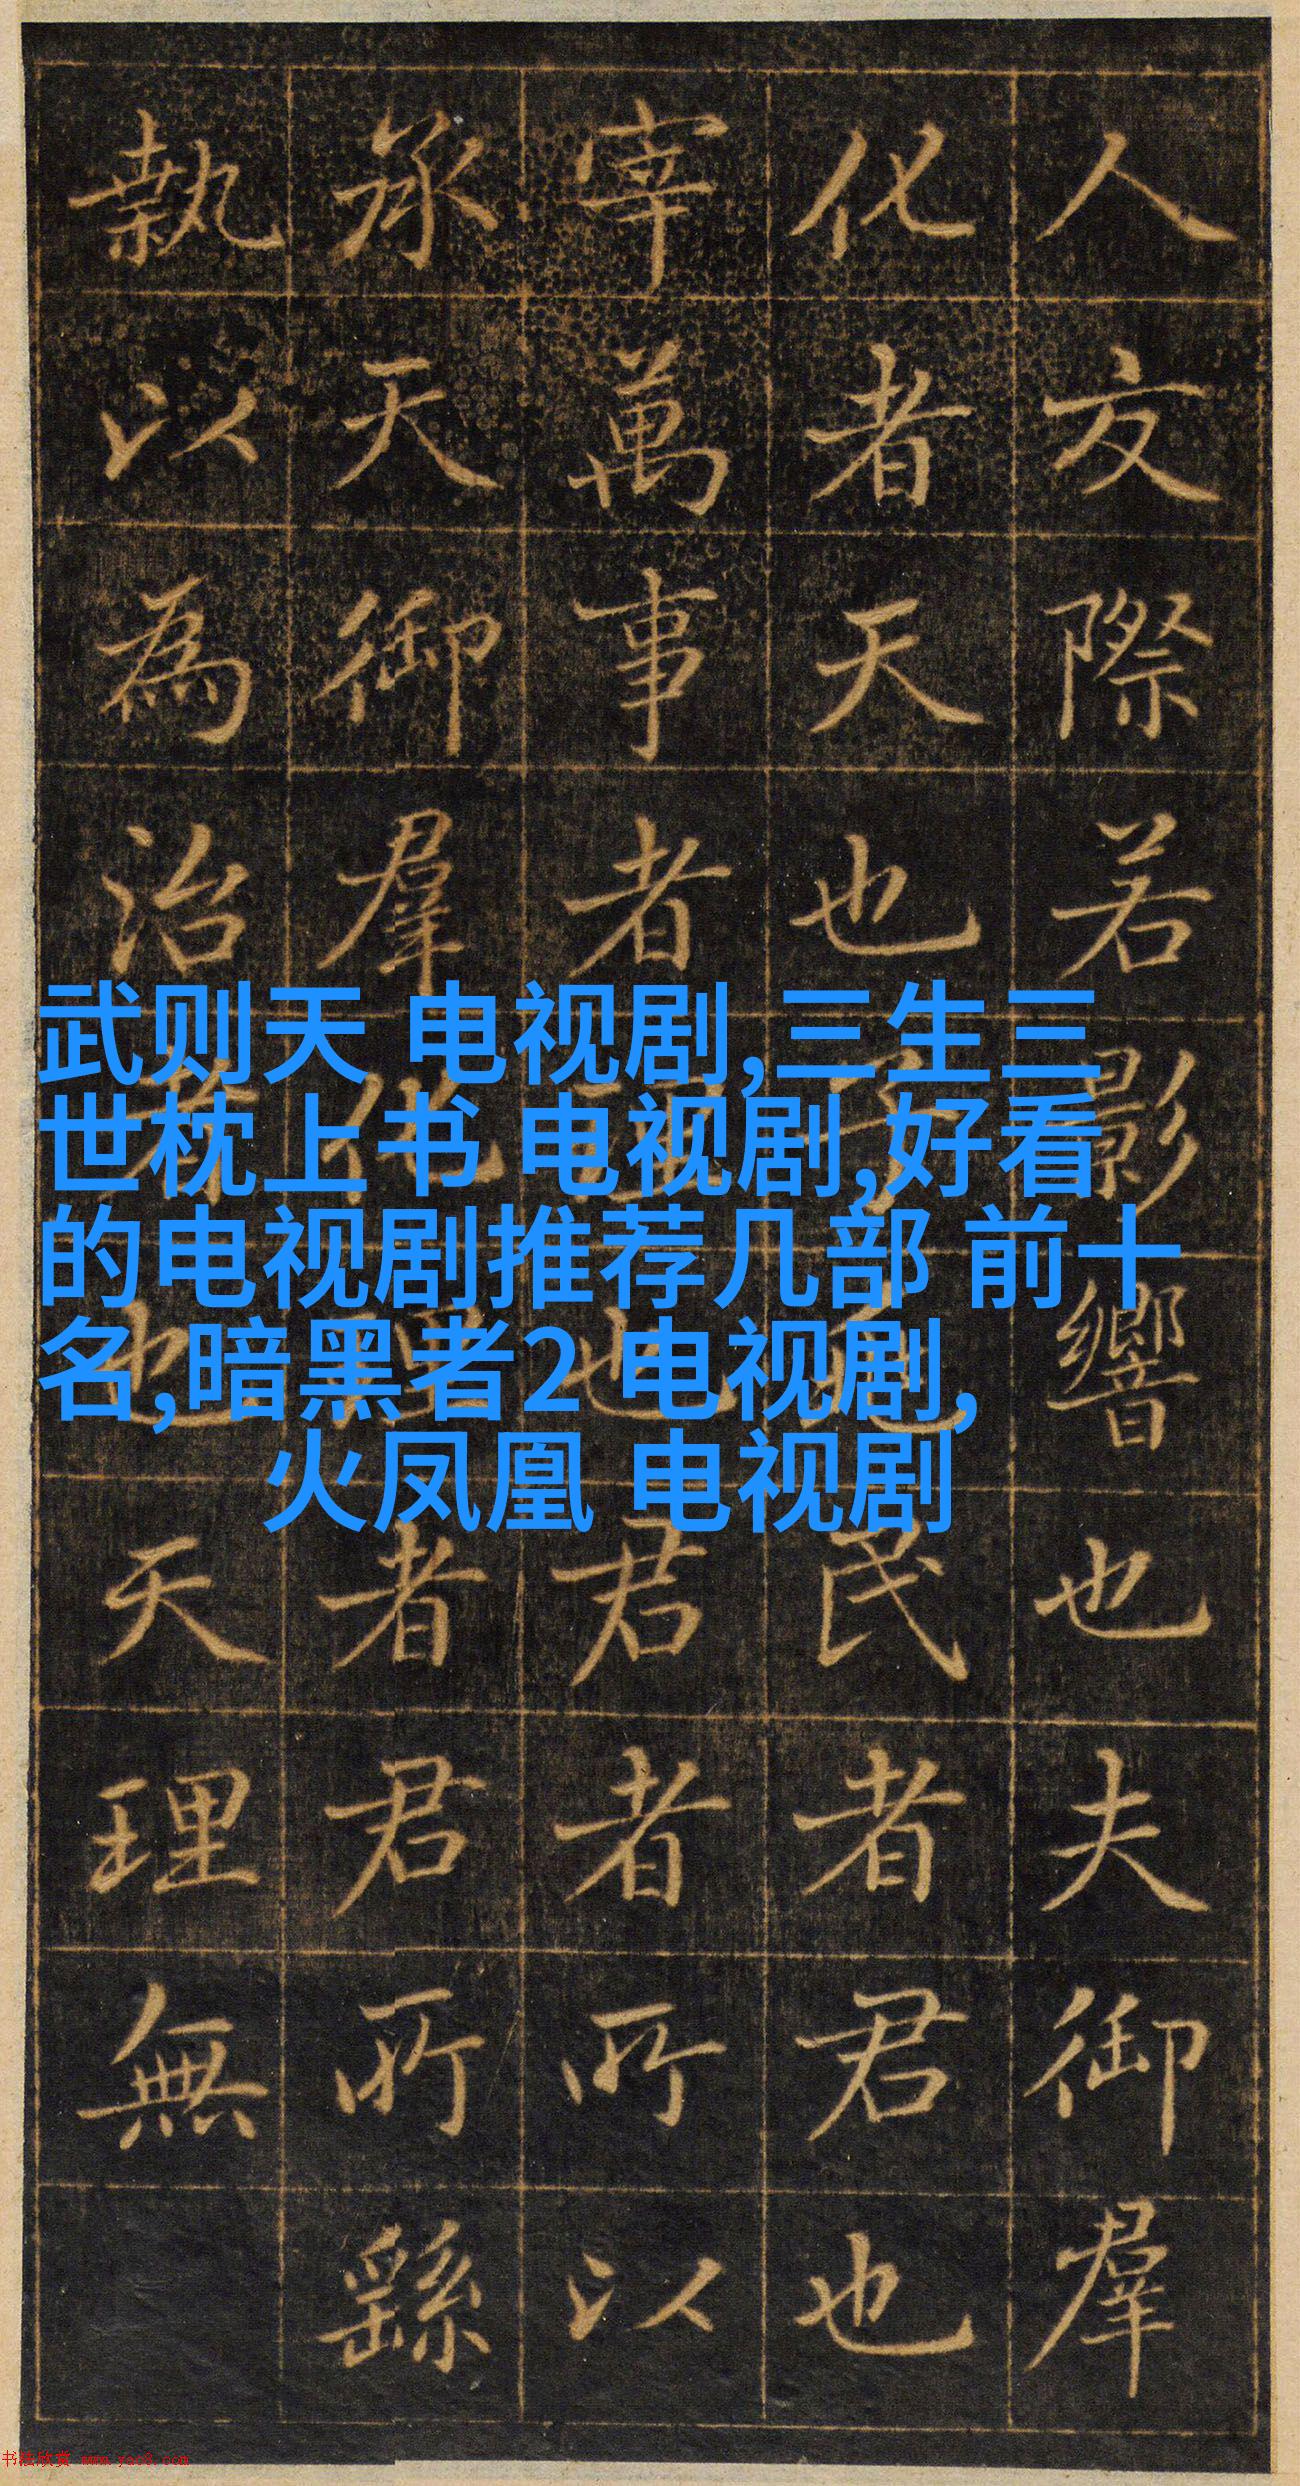 武则天 电视剧,三生三
世枕上书 电视剧,好看
的电视剧推荐几部 前十
名,暗黑者2 电视剧,
火凤凰 电视剧
人交際若影響也夫御羣
化者天也民者君也
宰萬事者臣也君者所以
承天御羣化理者君所繇
執以為治者也天理無
书法欣赏 www.yac8.com